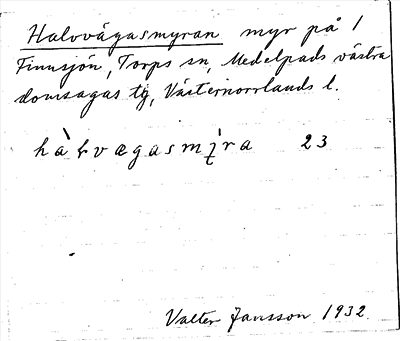 Halvvägasmyran myr på 1
Finnsjön, Torps sn, Medelpads västra
domsagas tg, Västernorrlands l.
hàɫvægasmỳ̨ra 23
Valter Jansson 1932.